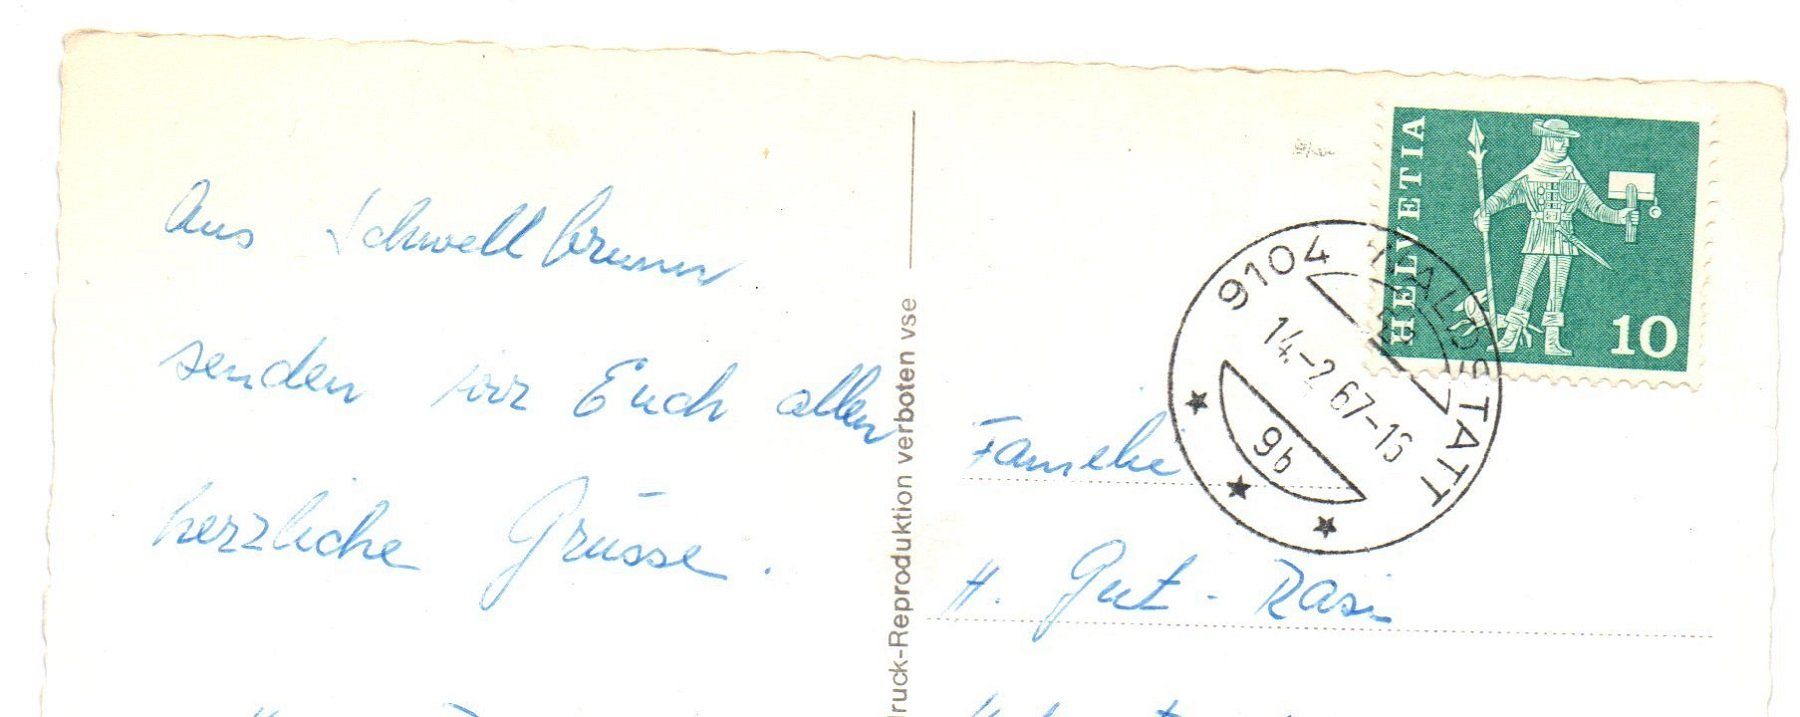 Aus Schwellbrunn
senden wir Euch allen
herzliche Grüsse.
druck-Reproduktion verboten vse
HELVETIA
10
9104 WALDSTATT
14.-2.67-16
9b
Familie
H. Gut-